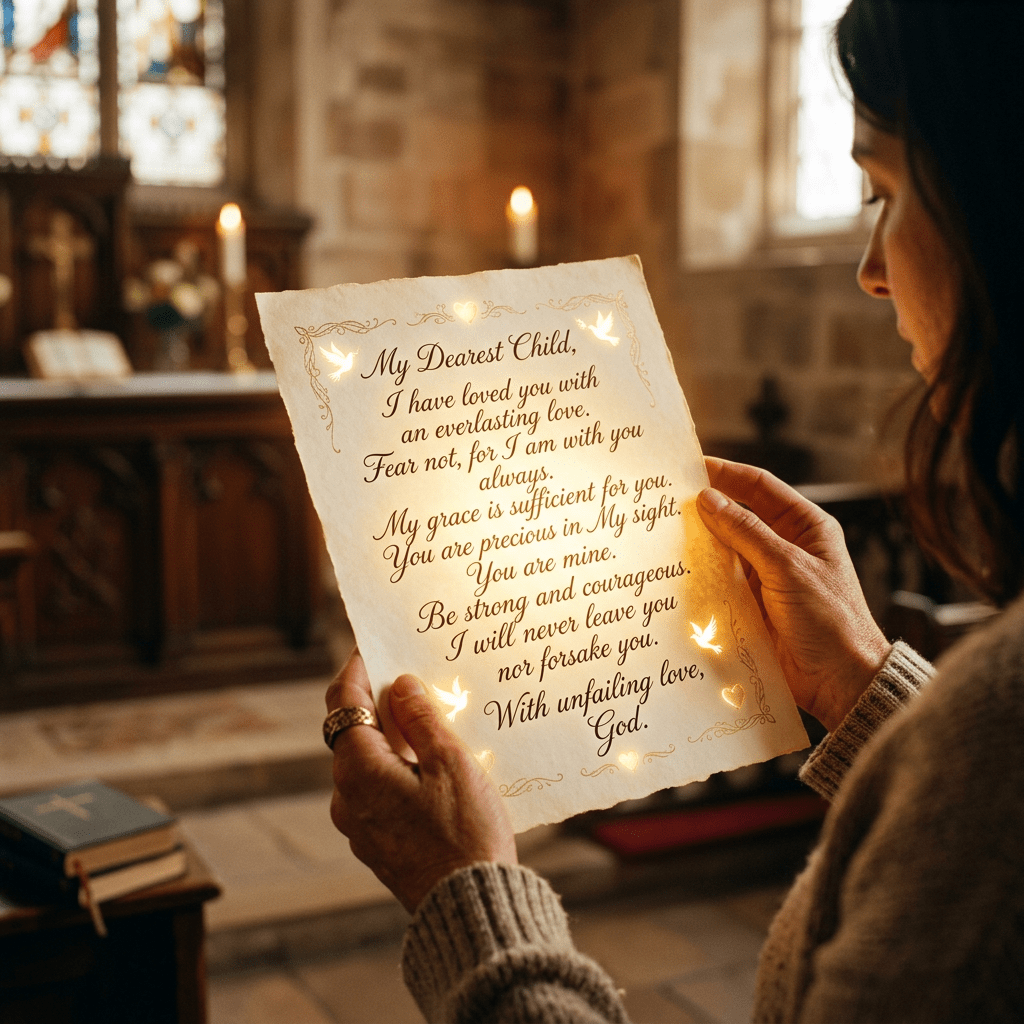 My Dearest Child,
I have loved you with
an everlasting love.
Fear not, for I am with you
always.
My grace is sufficient for you.
You are precious in My sight.
You are mine.
Be strong and courageous.
I will never leave you
nor forsake you.
With unfailing love,
God.